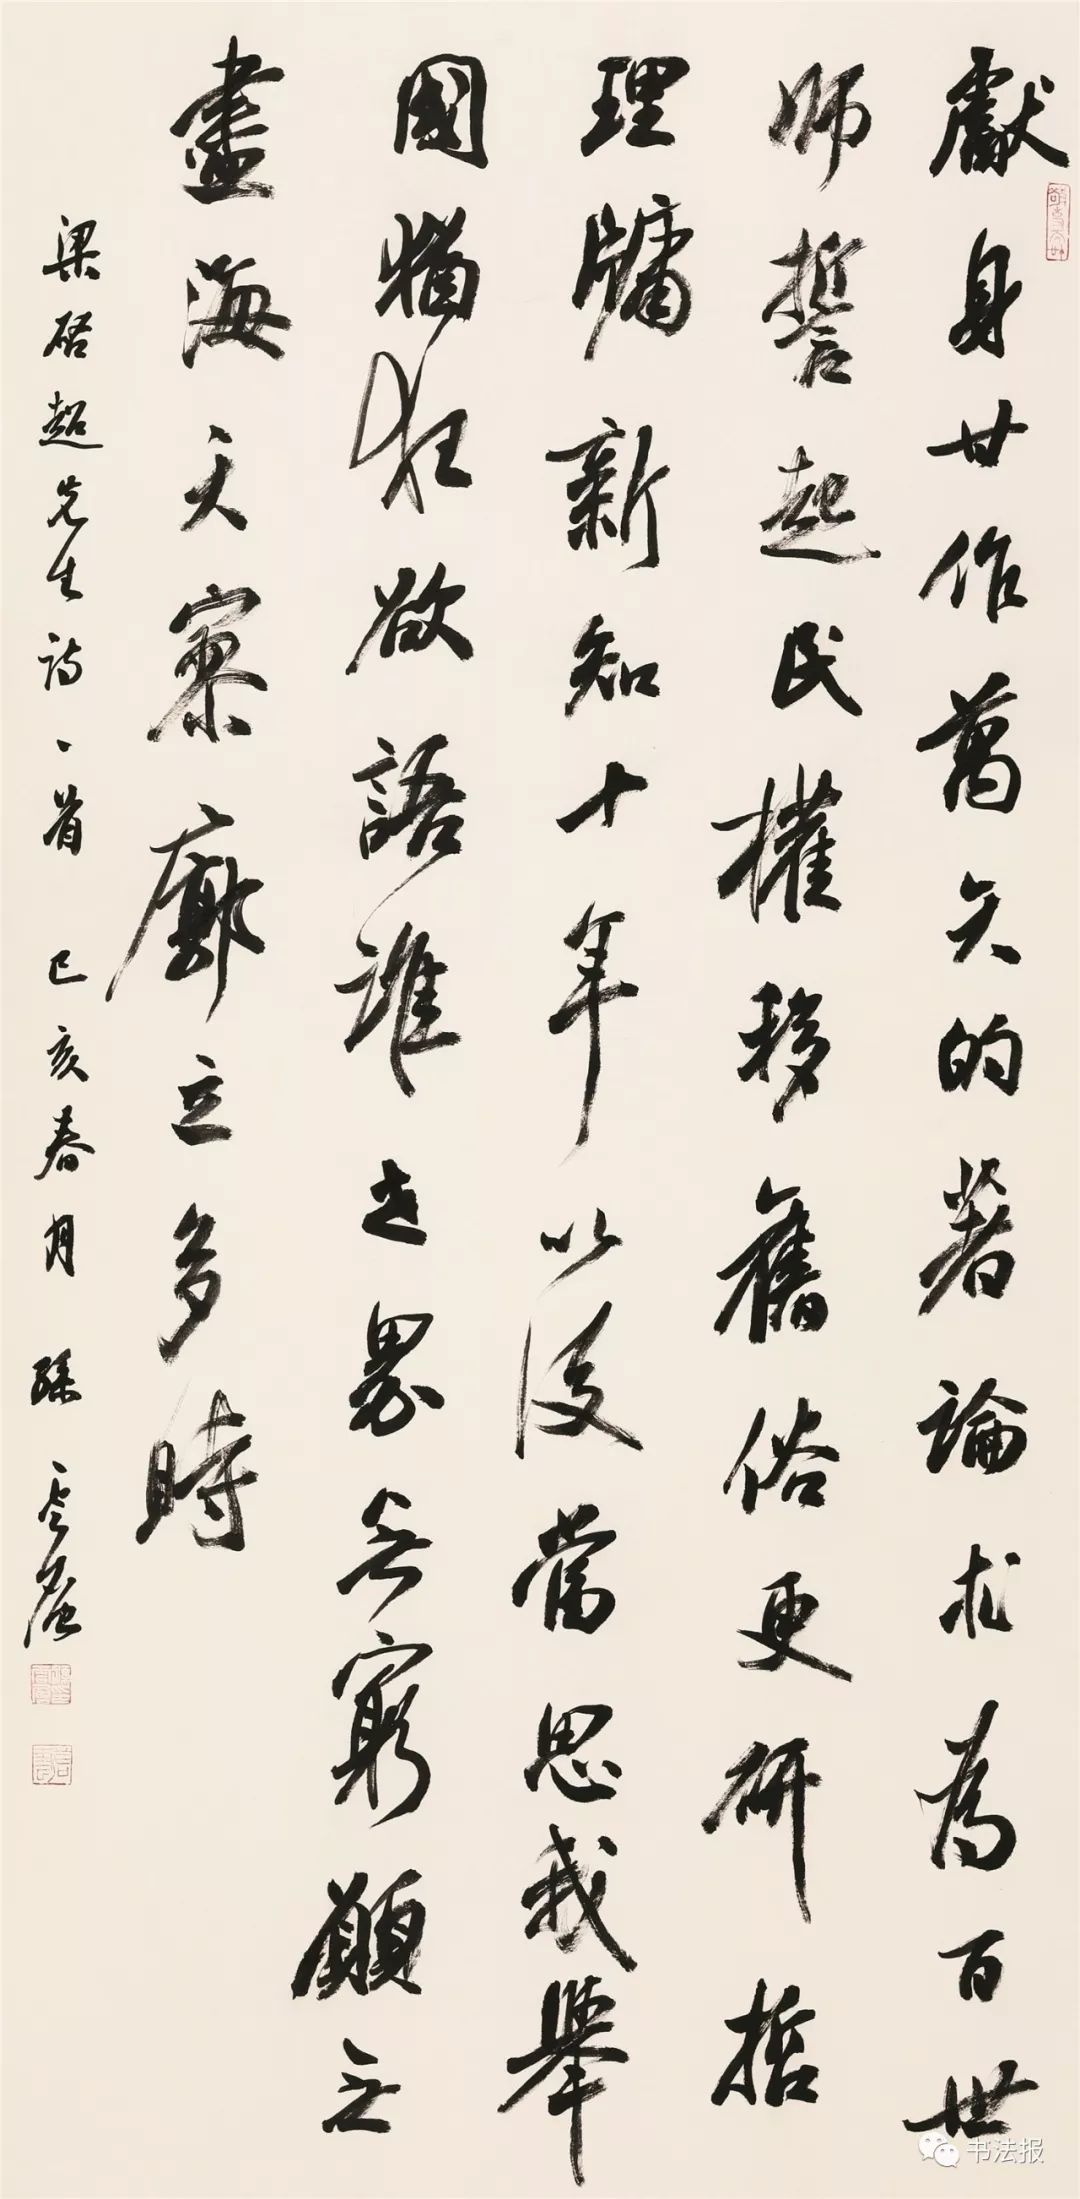 獻身甘作萬矢的著論求為百世
師誓起民權移舊俗更研哲
理牖新知十年以後當思我舉
國猶狂欲語誰世界無窮願无
盡海天寥廓立多時
梁启超先生詩一首 己亥春月 孫
书法报